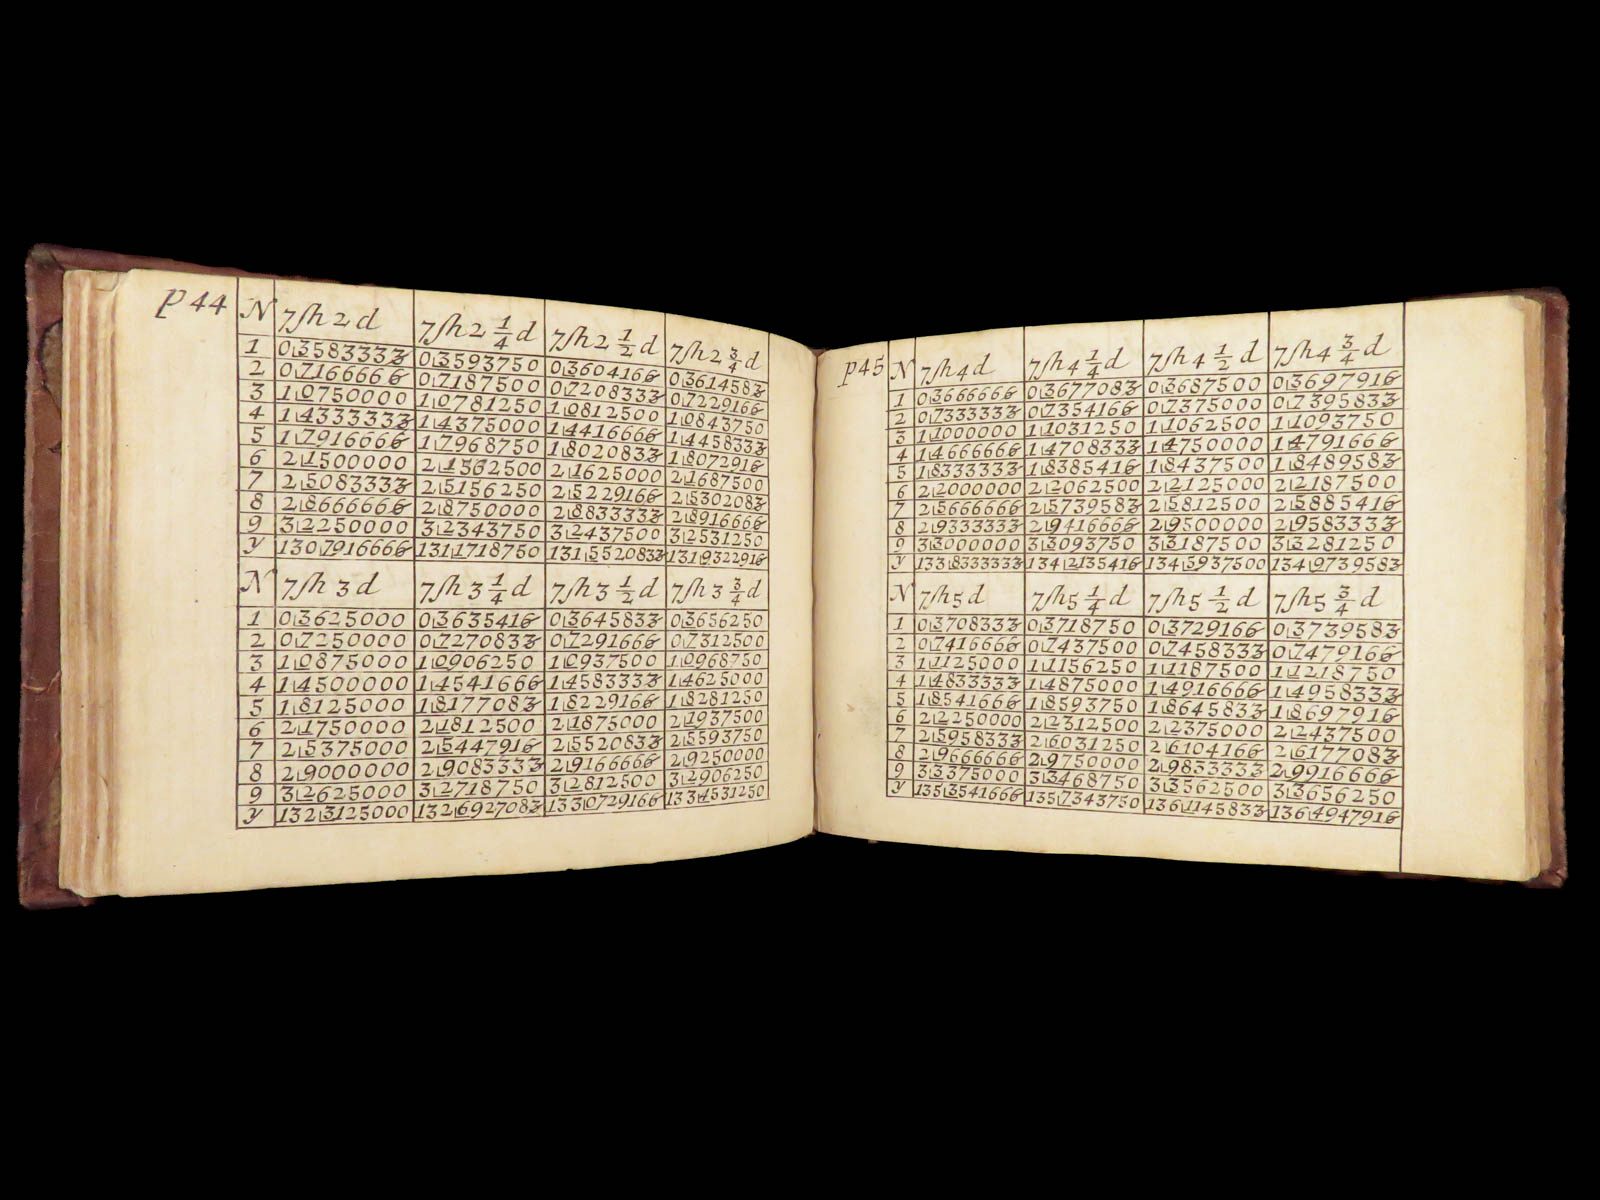 p 44
N 7ſh 2 d 7ſh 2 1/4 d 7ſh 2 1/2 d 7ſh 2 3/4 d
1 0⌊3583333 0⌊3593750 0⌊3604166 0⌊3614583
2 0⌊7166666 0⌊7187500 0⌊7208333 0⌊7229166
3 1⌊0750000 1⌊0781250 1⌊0812500 1⌊0843750
4 1⌊4333333 1⌊4375000 1⌊4416666 1⌊4458333
5 1⌊7916666 1⌊7968750 1⌊8020833 1⌊8072916
6 2⌊1500000 2⌊1562500 2⌊1625000 2⌊1687500
7 2⌊5083333 2⌊5156250 2⌊5229166 2⌊5302083
8 2⌊8666666 2⌊8750000 2⌊8833333 2⌊8916666
9 3⌊2250000 3⌊2343750 3⌊2437500 3⌊2531250
y 130⌊7916666 131⌊1718750 131⌊5520833 131⌊9322916
N 7ſh 3 d 7ſh 3 1/4 d 7ſh 3 1/2 d 7ſh 3 3/4 d
1 0⌊3625000 0⌊3635416 0⌊3645833 0⌊3656250
2 0⌊7250000 0⌊7270833 0⌊7291666 0⌊7312500
3 1⌊0875000 1⌊0906250 1⌊0937500 1⌊0968750
4 1⌊4500000 1⌊4541666 1⌊4583333 1⌊4625000
5 1⌊8125000 1⌊8177083 1⌊8229166 1⌊8281250
6 2⌊1750000 2⌊1812500 2⌊1875000 2⌊1937500
7 2⌊5375000 2⌊5447916 2⌊5520833 2⌊5593750
8 2⌊9000000 2⌊9083333 2⌊9166666 2⌊9250000
9 3⌊2625000 3⌊2718750 3⌊2812500 3⌊2906250
y 132⌊3125000 132⌊6927083 133⌊0729166 133⌊4531250
p45
N 7ſh 4 d 7ſh 4 1/4 d 7ſh 4 1/2 d 7ſh 4 3/4 d
1 0⌊3666666 0⌊3677083 0⌊3687500 0⌊3697916
2 0⌊7333333 0⌊7354166 0⌊7375000 0⌊7395833
3 1⌊1000000 1⌊1031250 1⌊1062500 1⌊1093750
4 1⌊4666666 1⌊4708333 1⌊4750000 1⌊4791666
5 1⌊8333333 1⌊8385416 1⌊8437500 1⌊8489583
6 2⌊2000000 2⌊2062500 2⌊2125000 2⌊2187500
7 2⌊5666666 2⌊5739583 2⌊5812500 2⌊5885416
8 2⌊9333333 2⌊9416666 2⌊9500000 2⌊9583333
9 3⌊3000000 3⌊3093750 3⌊3187500 3⌊3281250
y 133⌊8333333 134⌊2135416 134⌊5937500 134⌊9739583
N 7ſh 5 d 7ſh 5 1/4 d 7ſh 5 1/2 d 7ſh 5 3/4 d
1 0⌊3708333 0⌊3718750 0⌊3729166 0⌊3739583
2 0⌊7416666 0⌊7437500 0⌊7458333 0⌊7479166
3 1⌊1125000 1⌊1156250 1⌊1187500 1⌊1218750
4 1⌊4833333 1⌊4875000 1⌊4916666 1⌊4958333
5 1⌊8541666 1⌊8593750 1⌊8645833 1⌊8697916
6 2⌊2250000 2⌊2312500 2⌊2375000 2⌊2437500
7 2⌊5958333 2⌊6031250 2⌊6104166 2⌊6177083
8 2⌊9666666 2⌊9750000 2⌊9833333 2⌊9916666
9 3⌊3375000 3⌊3468750 3⌊3562500 3⌊3656250
y 135⌊3541666 135⌊7343750 136⌊1145833 136⌊4947916